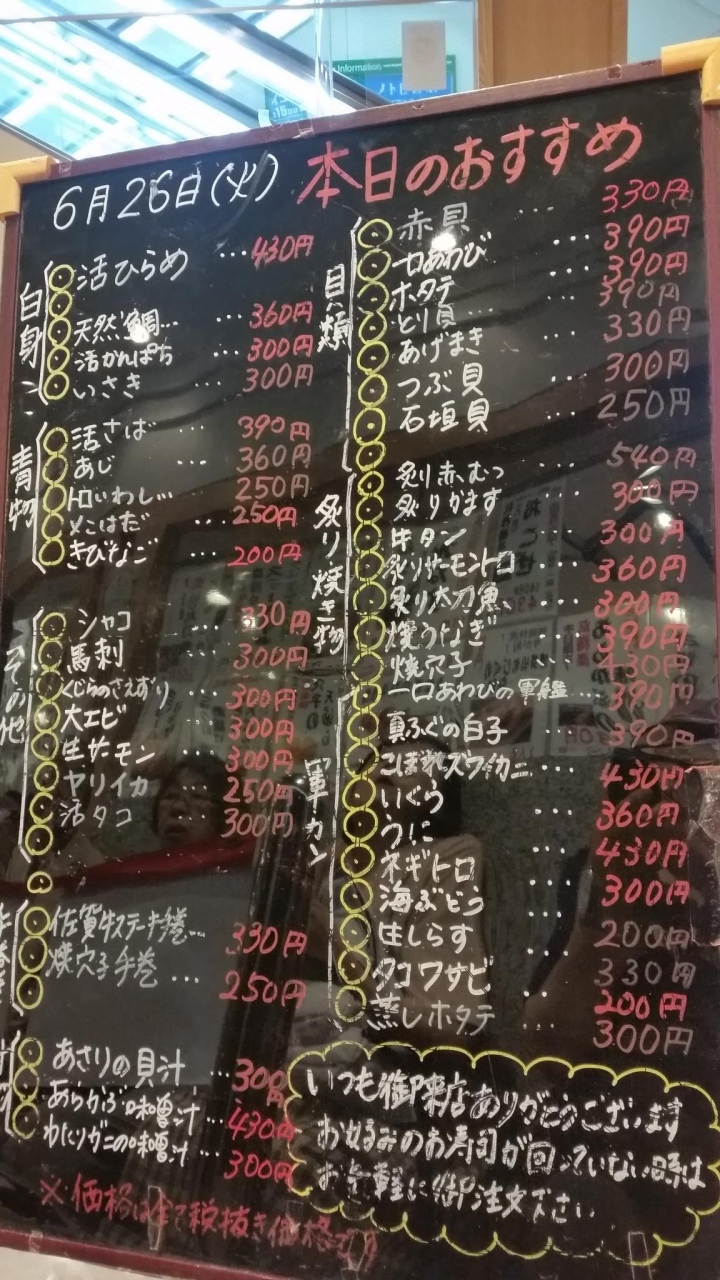 Information
6月26日(火) 本日のおすすめ
白身
活ひらめ …430円
天然鯛… …360円
活かんぱち …300円
いさき …300円
青物
活さば …390円
あじ …360円
トロいわし… 250円
こはだ …250円
きびなご …200円
その他
シャコ …330円
馬刺 …300円
くじらのさえずり …300円
大エビ …300円
生サーモン …300円
ヤリイカ …250円
活タコ …300円
佐賀牛ステーキ手巻… 330円
焼穴子手巻 …250円
あさりの貝汁 …300円
あらかぶ味噌汁 …430円
わたりガニの味噌汁 …300円
※価格は全て税抜き価格です
貝類
赤貝 …330円
一口あわび …390円
ホタテ …390円
とり貝 …390円
あげまき …330円
つぶ貝 …300円
石垣貝 …250円
炙り焼き物
炙り赤むつ …540円
炙りかます …300円
牛タン …300円
炙りサーモントロ …360円
炙り太刀魚 …300円
焼うなぎ …390円
焼穴子 …430円
軍カン
一口あわびの軍艦…390円
真ふぐの白子 …390円
こぼれズワイカニ …430円
いくら …360円
うに …430円
ネギトロ …300円
海ぶどう …200円
生しらす …330円
タコワサビ …200円
蒸しホタテ …300円
いつも御来店ありがとうございます
お好みのお寿司が回っていない時は
お気軽に御注文下さい